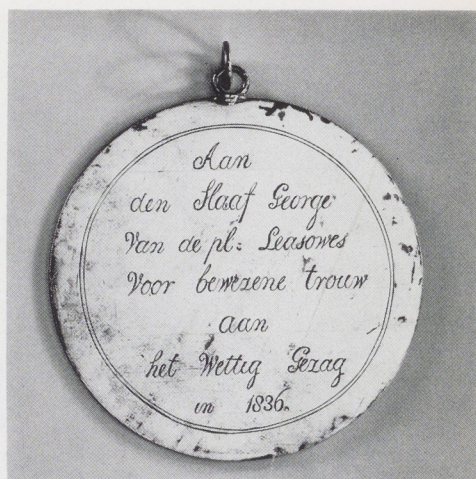 Aan
den Slaaf George
Van de pl: Leasowes
Voor bewezene trouw
aan
het Wettig Gezag
in 1836.